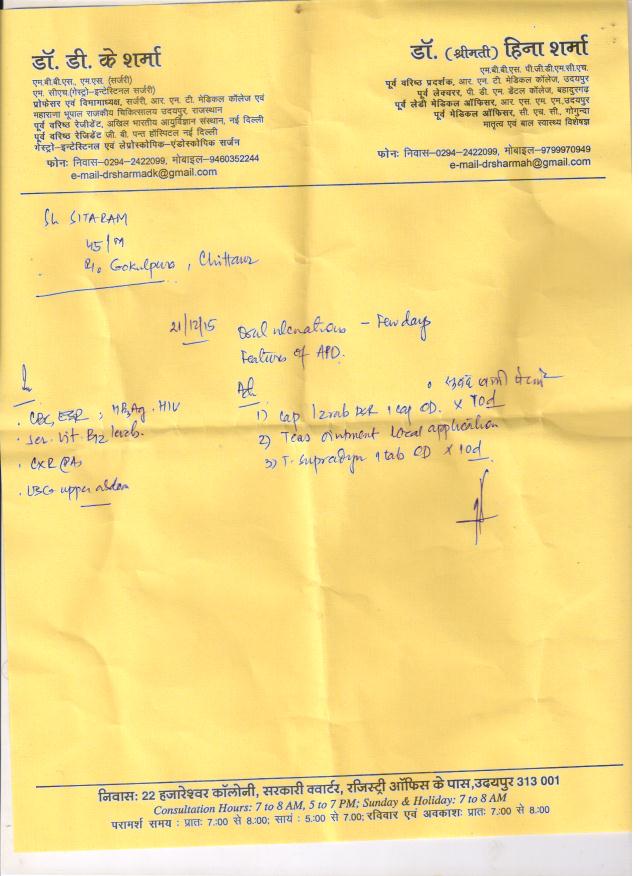 डॉ. डी. के शर्मा
एम.बी.बी.एस., एम.एस. (सर्जरी)
एम. सीएच.(गेस्ट्रो-इन्टेस्टिनल सर्जरी)
प्रोफेसर एवं विभागाध्यक्ष, सर्जरी, आर. एन. टी. मेडिकल कॉलेज एवं
महाराणा भूपाल राजकीय चिकित्सालय उदयपुर, राजस्थान
पूर्व वरिष्ठ रेजीडेंट, अखिल भारतीय आयुर्विज्ञान संस्थान, नई दिल्ली
पूर्व वरिष्ठ रेजिडेंट जी. बी. पन्त हॉस्पिटल नई दिल्ली
गेस्ट्रो-इन्टेस्टिनल एवं लेप्रोस्कोपिक-एंडोस्कोपिक सर्जन
फोनः निवास-0294-2422099, मोबाइल-9460352244
e-mail-drsharmadk@gmail.com
डॉ. (श्रीमती) हिना शर्मा
एम.बी.बी.एस. पी.जी.डी.एम.सी.एच.
पूर्व वरिष्ठ प्रदर्शक, आर. एन. टी. मेडिकल कॉलेज, उदयपुर
पूर्व लेक्चरर, पी. डी. एम. डेंटल कॉलेज, बहादुरगढ़
पूर्व लेडी मेडिकल ऑफिसर, आर. एस. एम. एम.,उदयपुर
पूर्व मेडिकल ऑफिसर, सी. एच. सी., गोगुन्दा
मातृत्व एवं बाल स्वास्थ्य विशेषज्ञ
फोनः निवास-0294-2422099, मोबाइल-9799970949
e-mail-drsharmah@gmail.com
Sh SITARAM
45/M
R/o Gokulpura, Chittaur
21/12/15 Oral ulcerations - Few days
Features of APD.
सुबह खाली पेट
. CBC, ESR, HBsAg. HIV
. Ser. Vit. B12 levels.
. CXR (PA)
. USG upper abdom
Adv
1) Cap. DSR 1 cap OD. x 10d
2) Tess ointment Local application
3) T. Supradyn 1 tab OD x 10d
निवासः 22 हजारेश्वर कॉलोनी, सरकारी क्वार्टर, रजिस्ट्री ऑफिस के पास,उदयपुर 313 001
Consultation Hours: 7 to 8 AM, 5 to 7 PM; Sunday & Holiday: 7 to 8 AM
परामर्श समय : प्रातः 7.:00 से 8.:00; सायं : 5.:00 से 7.00; रविवार एवं अवकाशः प्रातः 7.:00 से 8.:00